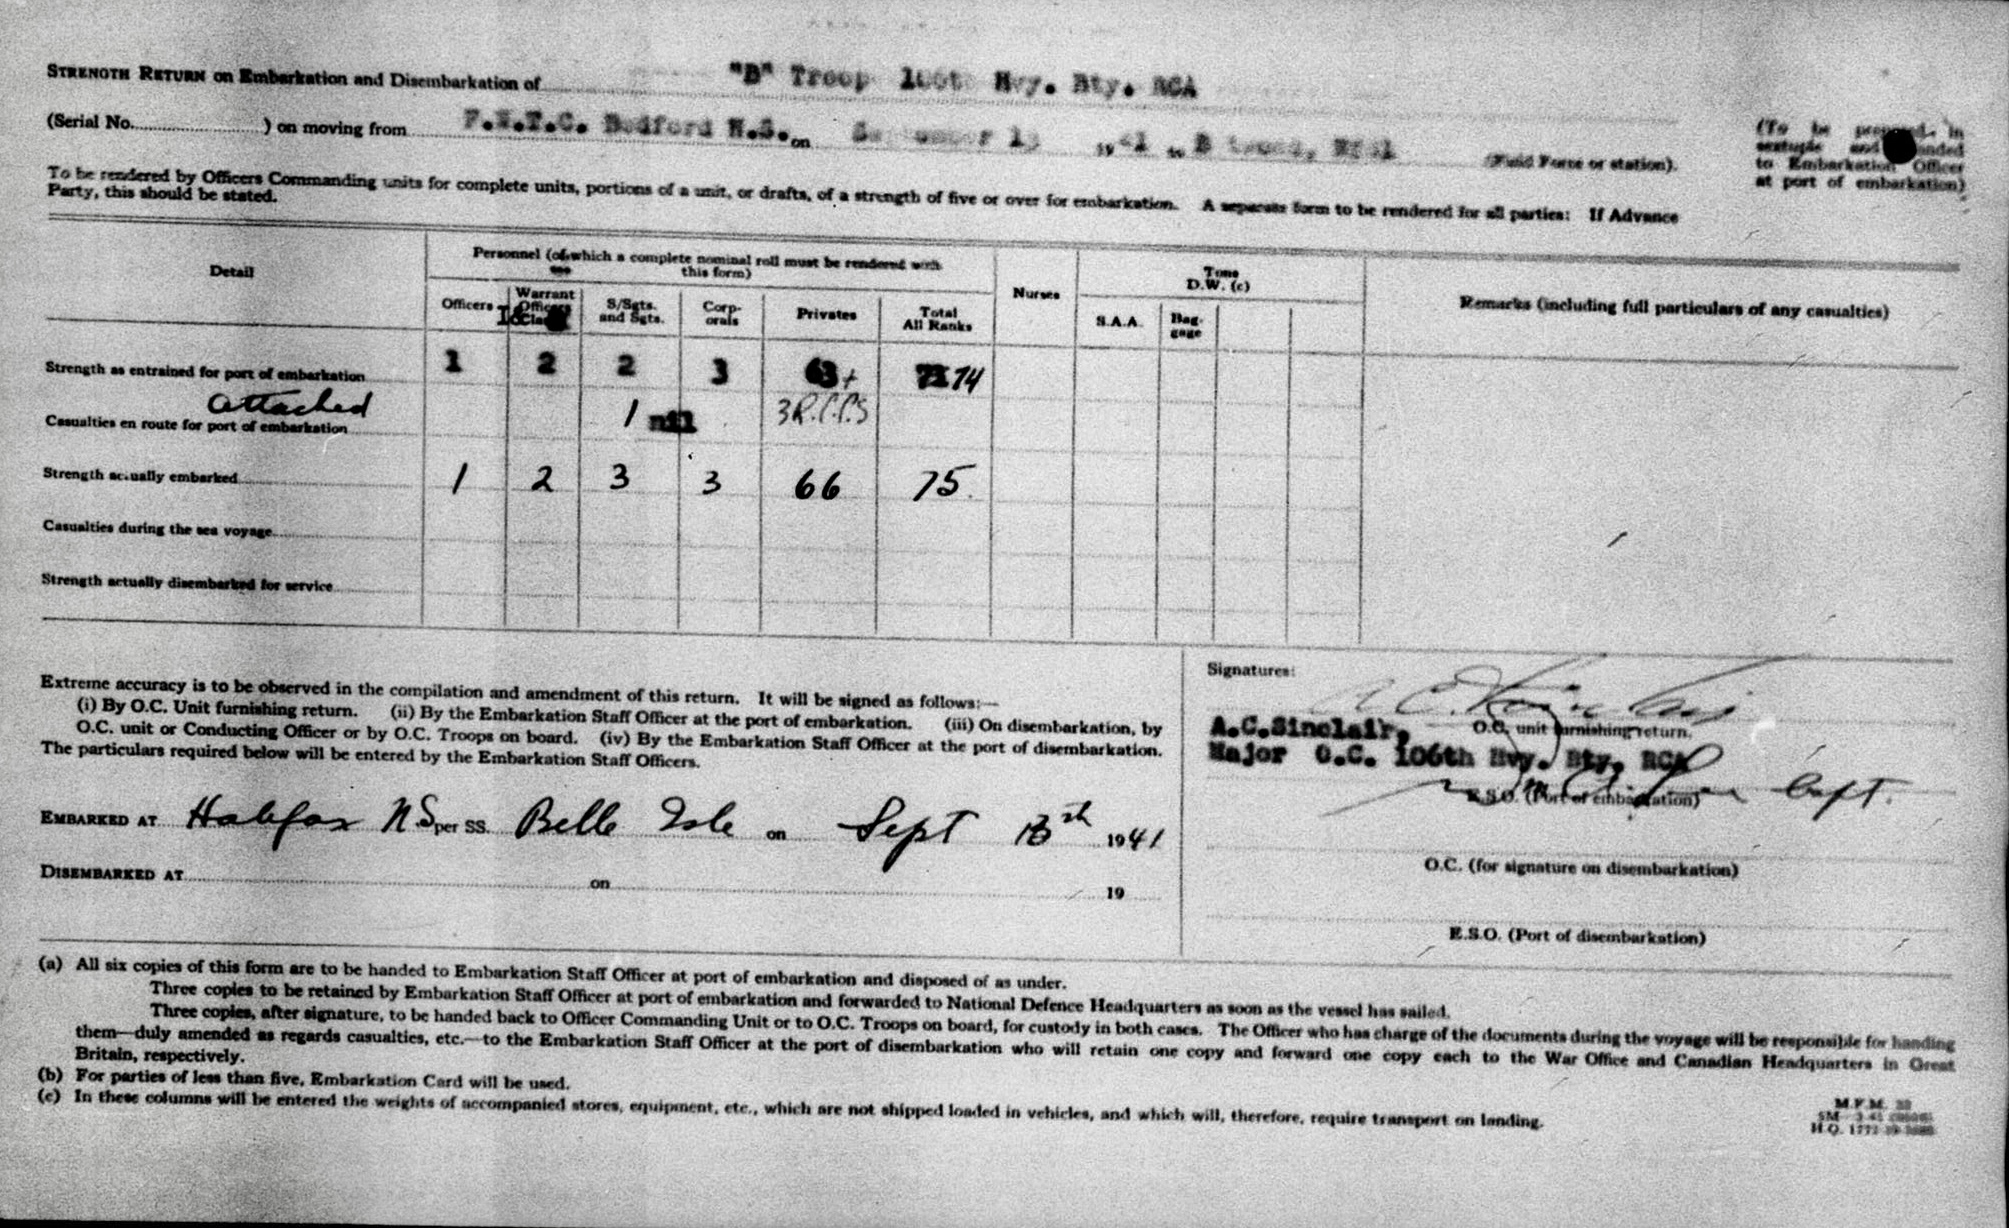 STRENGTH RETURN on Embarkation and Disembarkation of "B" Troop 106th Hvy. Bty. RCA
(Serial No. ) on moving from Bedford N.S. on September 13 1941 to (Field Force or station).
(To be prepared in
sextuple and handed
to Embarkation Officer
at port of embarkation)
To be rendered by Officers Commanding units for complete units, portions of a unit, or drafts, of a strength of five or over for embarkation. A separate form to be rendered for all parties: If Advance
Party, this should be stated.
Detail
Personnel (of which a complete nominal roll must be rendered with
this form)
Officers
Warrant
Officers
Class
S/Sgts.
and Sgts.
Corp-
orals
Privates
Total
All Ranks
Nurses
Tons
D.W. (c)
S.A.A.
Bag-
gage
Remarks (including full particulars of any casualties)
Strength as entrained for port of embarkation 1 2 2 3 63+ 74
attached 1 3
Casualties en route for port of embarkation nil
Strength actually embarked 1 2 3 3 66 75
Casualties during the sea voyage
Strength actually disembarked for service
Extreme accuracy is to be observed in the compilation and amendment of this return. It will be signed as follows:—
(i) By O.C. Unit furnishing return. (ii) By the Embarkation Staff Officer at the port of embarkation. (iii) On disembarkation, by
O.C. unit or Conducting Officer or by O.C. Troops on board. (iv) By the Embarkation Staff Officer at the port of disembarkation.
The particulars required below will be entered by the Embarkation Staff Officers.
EMBARKED AT Halifax NS per SS. Belle Isle on Sept 13th 1941
DISEMBARKED AT on 19
Signatures:
A.C.Sinclair,
O.C. unit furnishing return.
Major O.C. 106th Hvy. Bty. RCA
Capt.
E.S.O. (Port of embarkation)
O.C. (for signature on disembarkation)
E.S.O. (Port of disembarkation)
(a) All six copies of this form are to be handed to Embarkation Staff Officer at port of embarkation and disposed of as under.
Three copies to be retained by Embarkation Staff Officer at port of embarkation and forwarded to National Defence Headquarters as soon as the vessel has sailed.
Three copies, after signature, to be handed back to Officer Commanding Unit or to O.C. Troops on board, for custody in both cases. The Officer who has charge of the documents during the voyage will be responsible for handing
them—duly amended as regards casualties, etc.—to the Embarkation Staff Officer at the port of disembarkation who will retain one copy and forward one copy each to the War Office and Canadian Headquarters in Great
Britain, respectively.
(b) For parties of less than five, Embarkation Card will be used.
(c) In these columns will be entered the weights of accompanied stores, equipment, etc., which are not shipped loaded in vehicles, and which will, therefore, require transport on landing.
M.F.M.
5M
H.Q. 1772